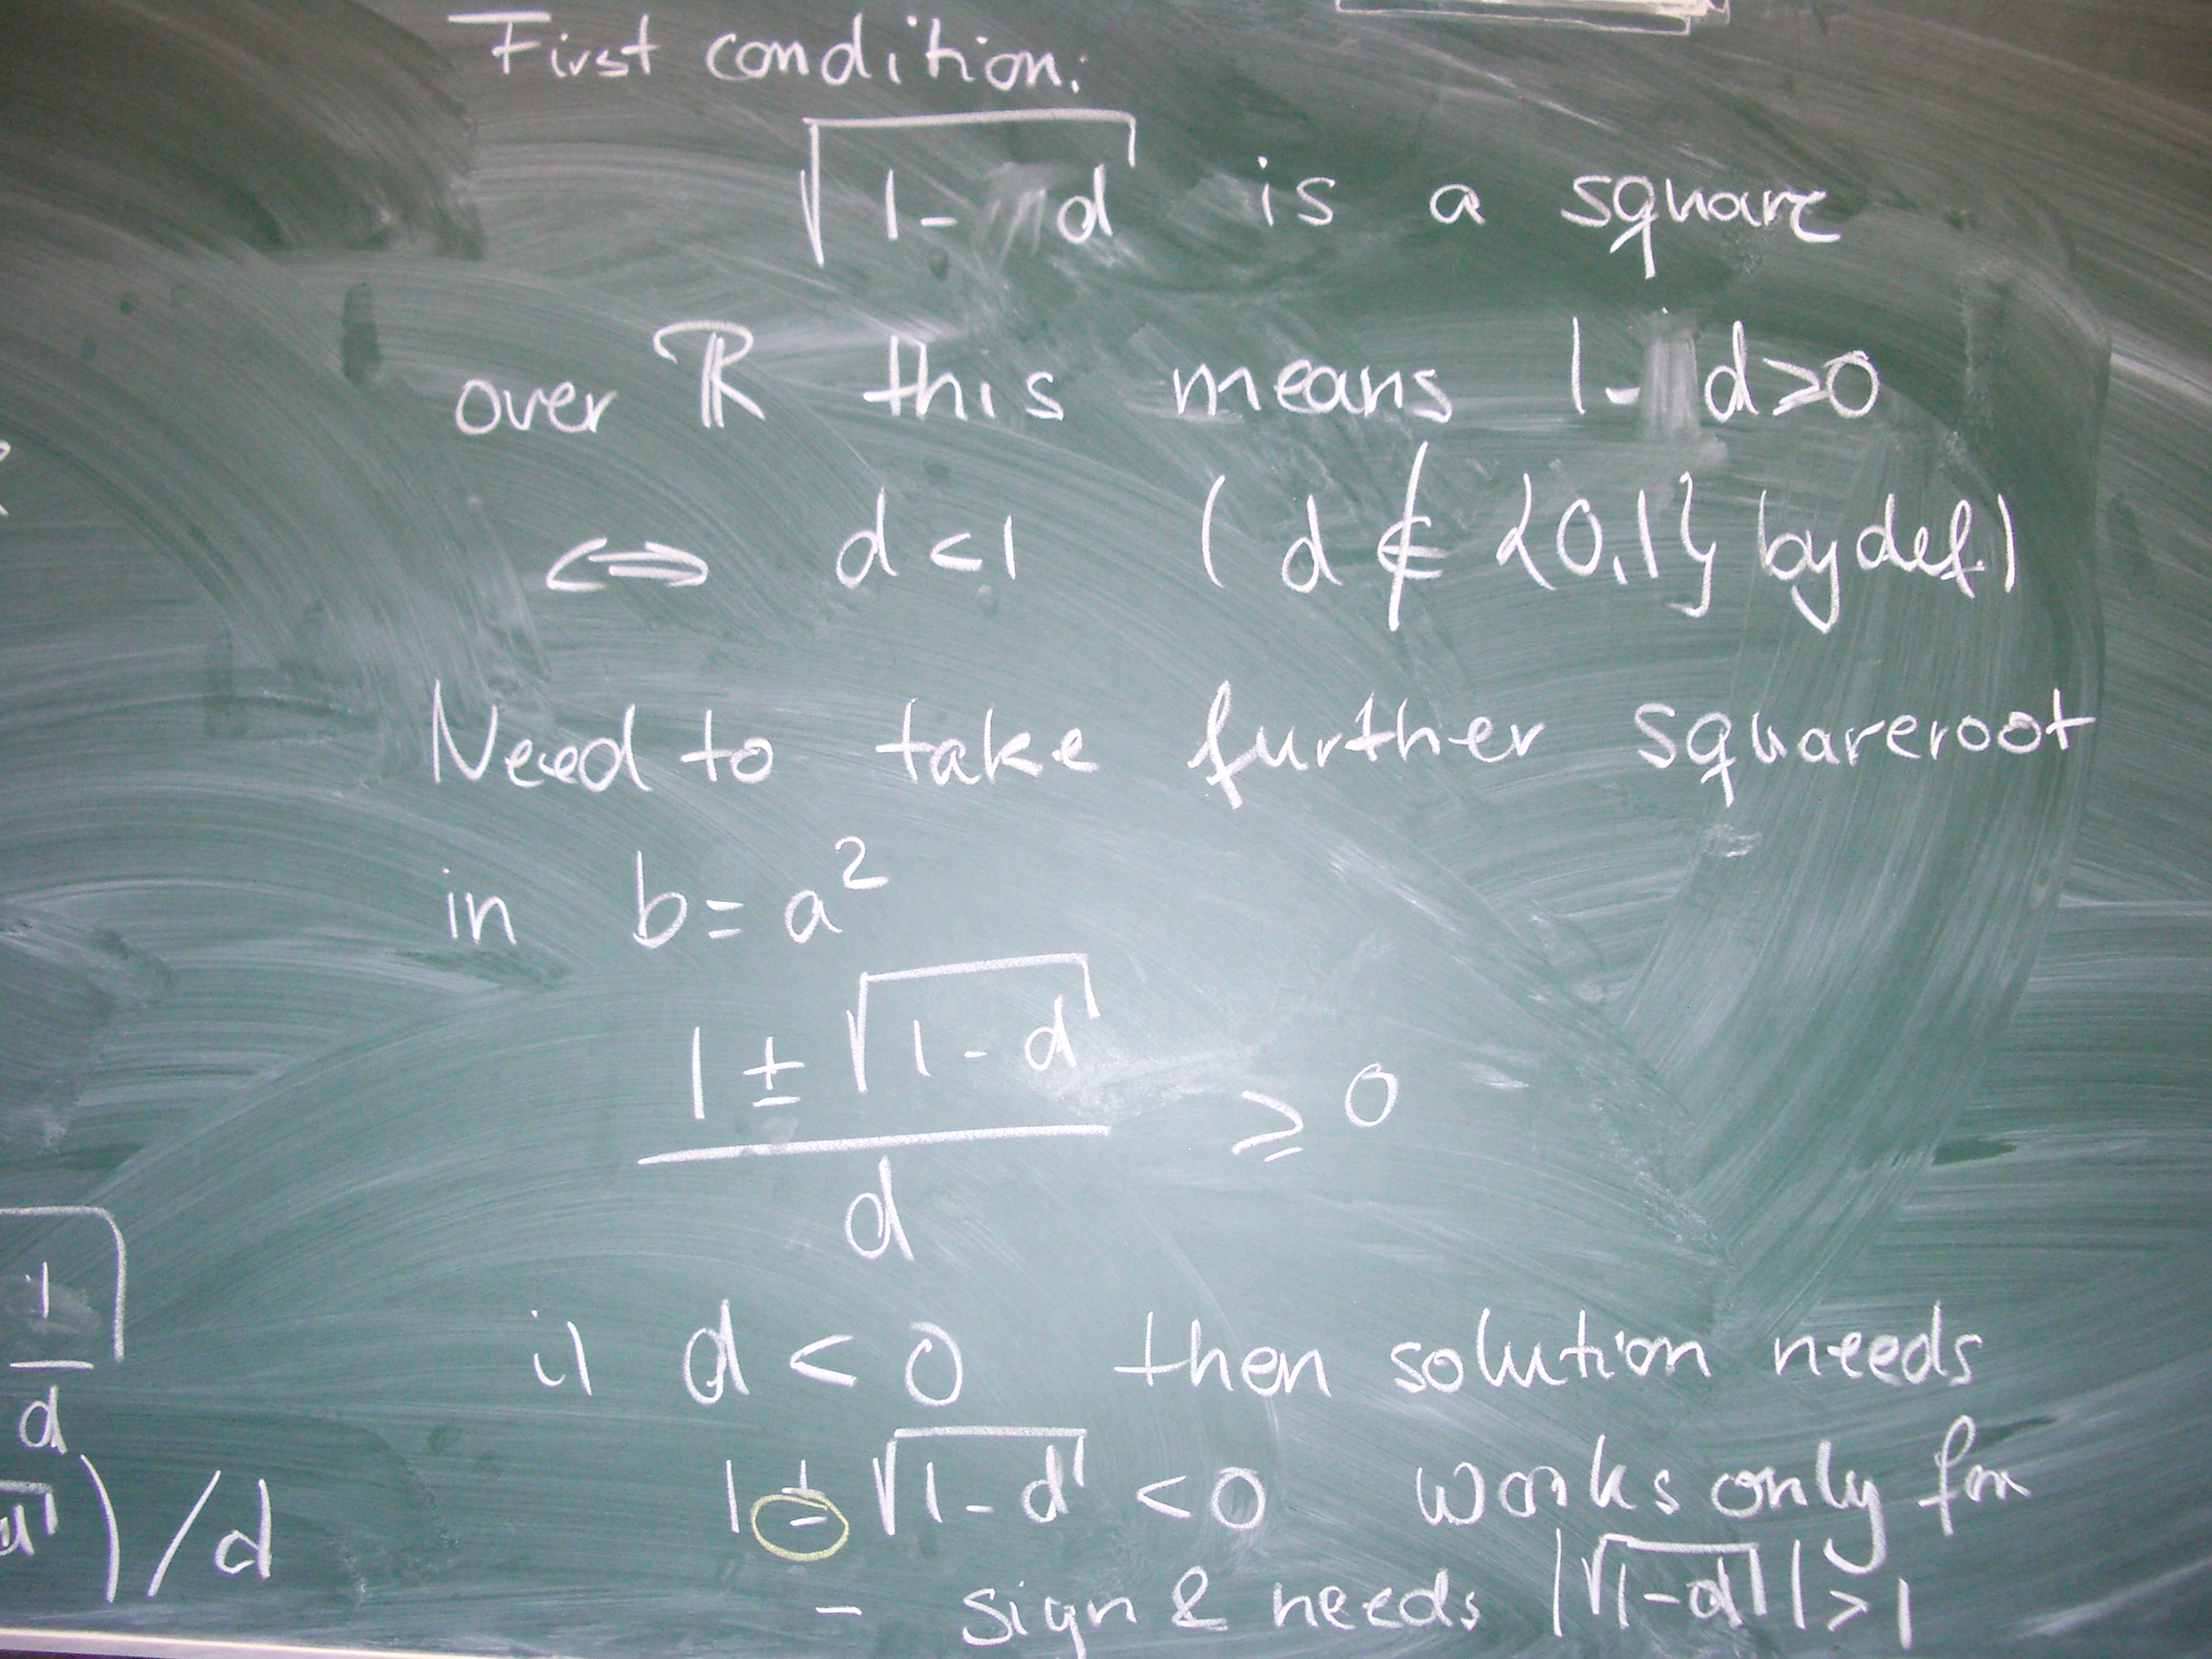 First condition:
√(1-d) is a square
over ℝ this means 1-d>0
⟺ d<1 (d ∉ {0,1} by def.)
Need to take further squareroot
in b=a²
1 ± √(1-d)
≥ 0
d
if d < 0 then solution needs
1
d
1 ± √(1-d) < 0 works only for
) /d
- sign & needs |√(1-d)| > 1